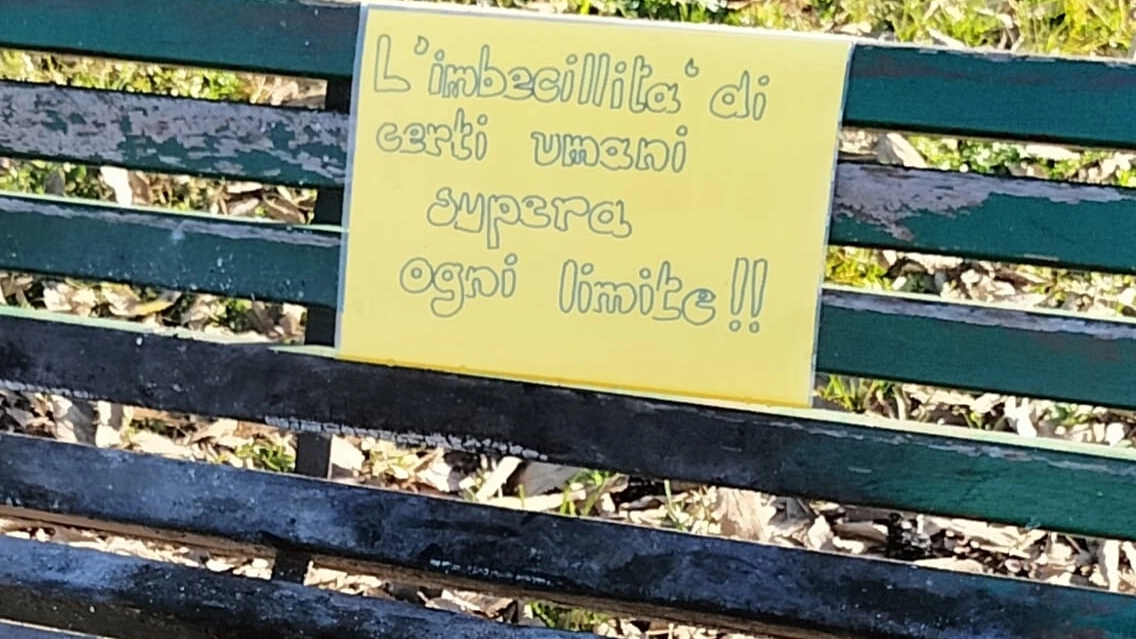 L'imbecillita' di
certi umani
supera
ogni limite!!